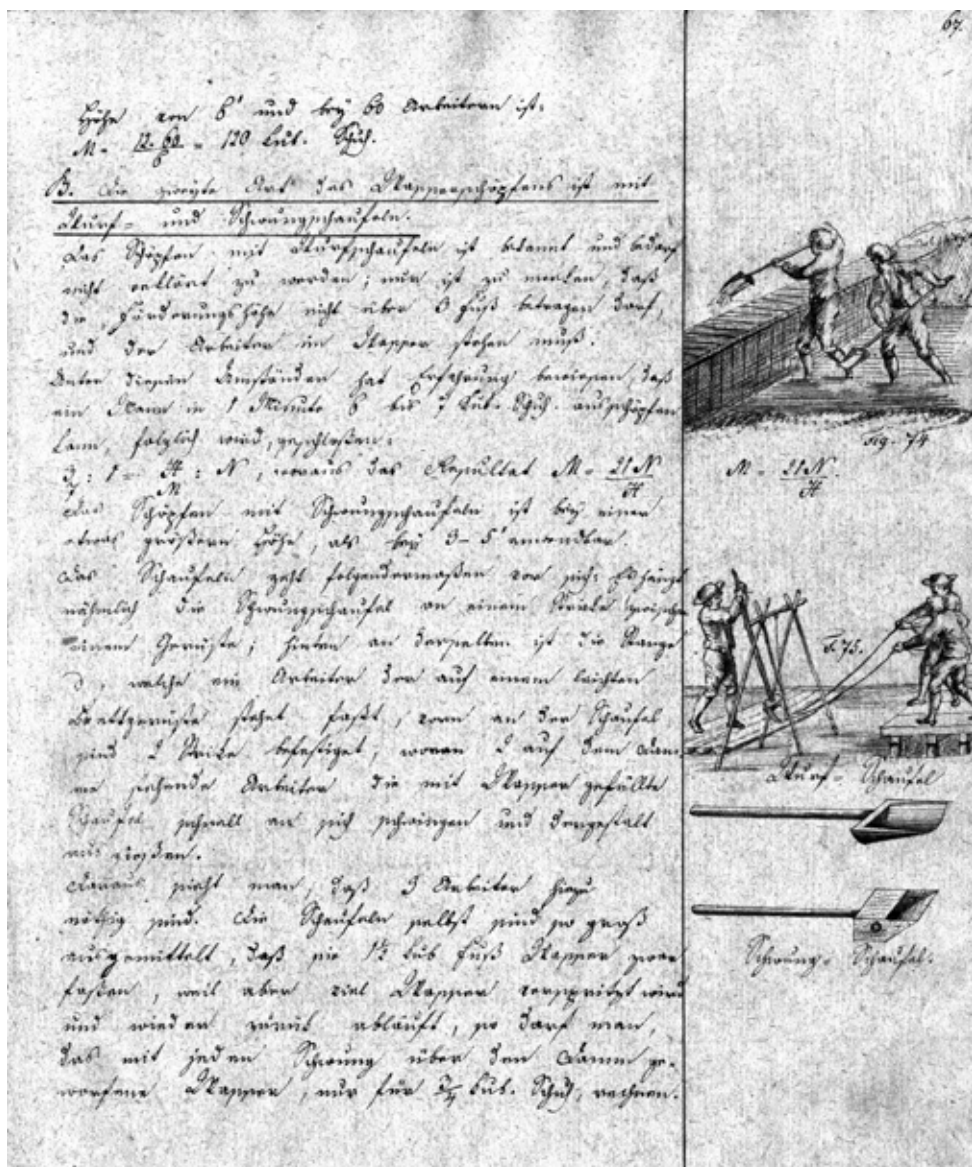 67.
Höhe von 6' und bey 60 Arbeitern ist:
M = 12. 60 / 6 = 120 Cub. Schuh.
B. Die zweyte Art das Wasserschöpfens ist mit
Wurf- und Schwungschaufeln.
Das Schöpfen mit Wurfschaufeln ist bekannt und bedarf
nicht erklärt zu werden; nur ist zu merken, daß
die Förderungshöhe nicht über 3 Fuß betragen darf,
und der Arbeiter im Wasser stehen muß.
Unter diesen Umständen hat Erfahrung bewiesen, daß
ein Mann in 1 Minute 6 bis 7 Cub. Schuh. ausschöpfen
kann, folglich wird, geschloßen:
3/7 : 1 = H/M : N, woraus das Resultat M = 21 N / H
Das Schöpfen mit Schwungschaufeln, ist bey einer
etwas größern Höhe, als bey 3 – 5' anwendbar.
Das Schaufeln geht folgendermaßen vor sich: Es hängt
nähmlich die Schwungschaufel an einem Stricke zwischen
einem Gerüste; hinten an derselben ist die Stange
welche ein Arbeiter der auf einem leichten
Brettgerüste stehet faßt, vorn an der Schaufel
sind 2 Stricke befestiget, woran 2 auf dem Dam-
me stehende Arbeiter die mit Wasser gefüllte
Schaufel schnell an sich schwingen und dergestalt
aus gießen.
Daraus sieht man, daß 3 Arbeiter hiezu
nöthig sind. Die Schaufeln selbst sind so groß
ausgemittelt, daß sie 1½ Cub Fuß Wasser zwar
faßen, weil aber viel Wasser verspritzt wird
und wieder zurück abläuft, so darf man,
das mit jeden Schwung über den Damm ge-
worfene Wasser, nur für ¾ Cub. Schuh, rechnen.
Fig. 74
M = 21 N / H
F. 75.
Wurf- Schaufel
Schwung- Schaufel.